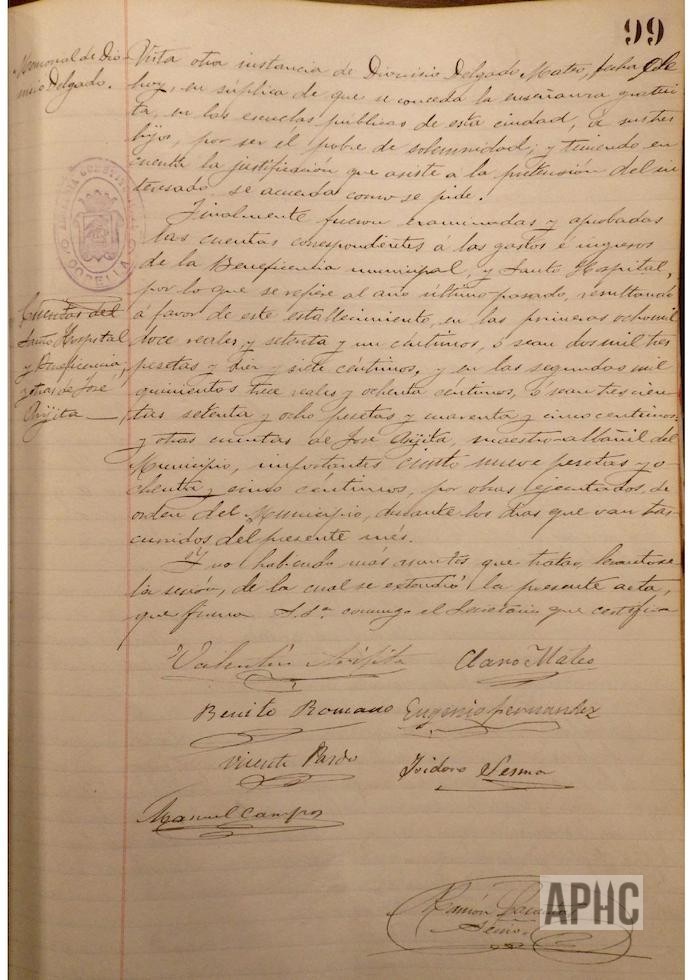 99
Memorial de Dio-
nisio Delgado.
Vista otra instancia de Dionisio Delgado Mateo, fecha de
hoy, en súplica de que se conceda la enseñanza gratui-
ta, en las escuelas públicas de esta ciudad, á sus tres
hijos, por ser el pobre de solemnidad; y teniendo en
cuenta la justificación que asiste a la pretensión del in-
teresado se acuerda como se pide.
Finalmente fueron examinadas y aprobadas
las cuentas correspondientes á los gastos é ingresos
de la Beneficentia municipal, y Santo Hospital,
por lo que se refiere al año último pasado, resultando
á favor de este establecimiento, en las primeras ocho mil
doce reales y setenta y un céntimos, ó sean dos mil tres
pesetas y diez y siete céntimos, y en las segundas mil
quinientos trece reales y ochenta céntimos, ó sean trescien-
tas setenta y ocho pesetas y cuarenta y cinco centimos.
y otras cuentas de José Arijita, maestro-albañil del
Municipio, importantes ciento nueve pesetas y o-
chenta y cinco céntimos, por obras ejecutadas, de
orden del Municipio, durante los dias que van tras-
curridos del presente més.
Y no habiendo más asuntos que tratar, levantose
la sesión, de la cual se extendió la presente acta,
que firma S.Sª conmigo el Secretario que certifica
Cuentas del
Santo Hospital
y Beneficencia,
y otras de José
Arijita
ALCALDIA CONSTITUCIONAL
CORELLA
Valentín Arijita Claro Mateo
Benito Romano Eugenio Fernandez
Vicente Pardo Isidoro Sesma
Manuel Campos
Ramón
Srio
APHC